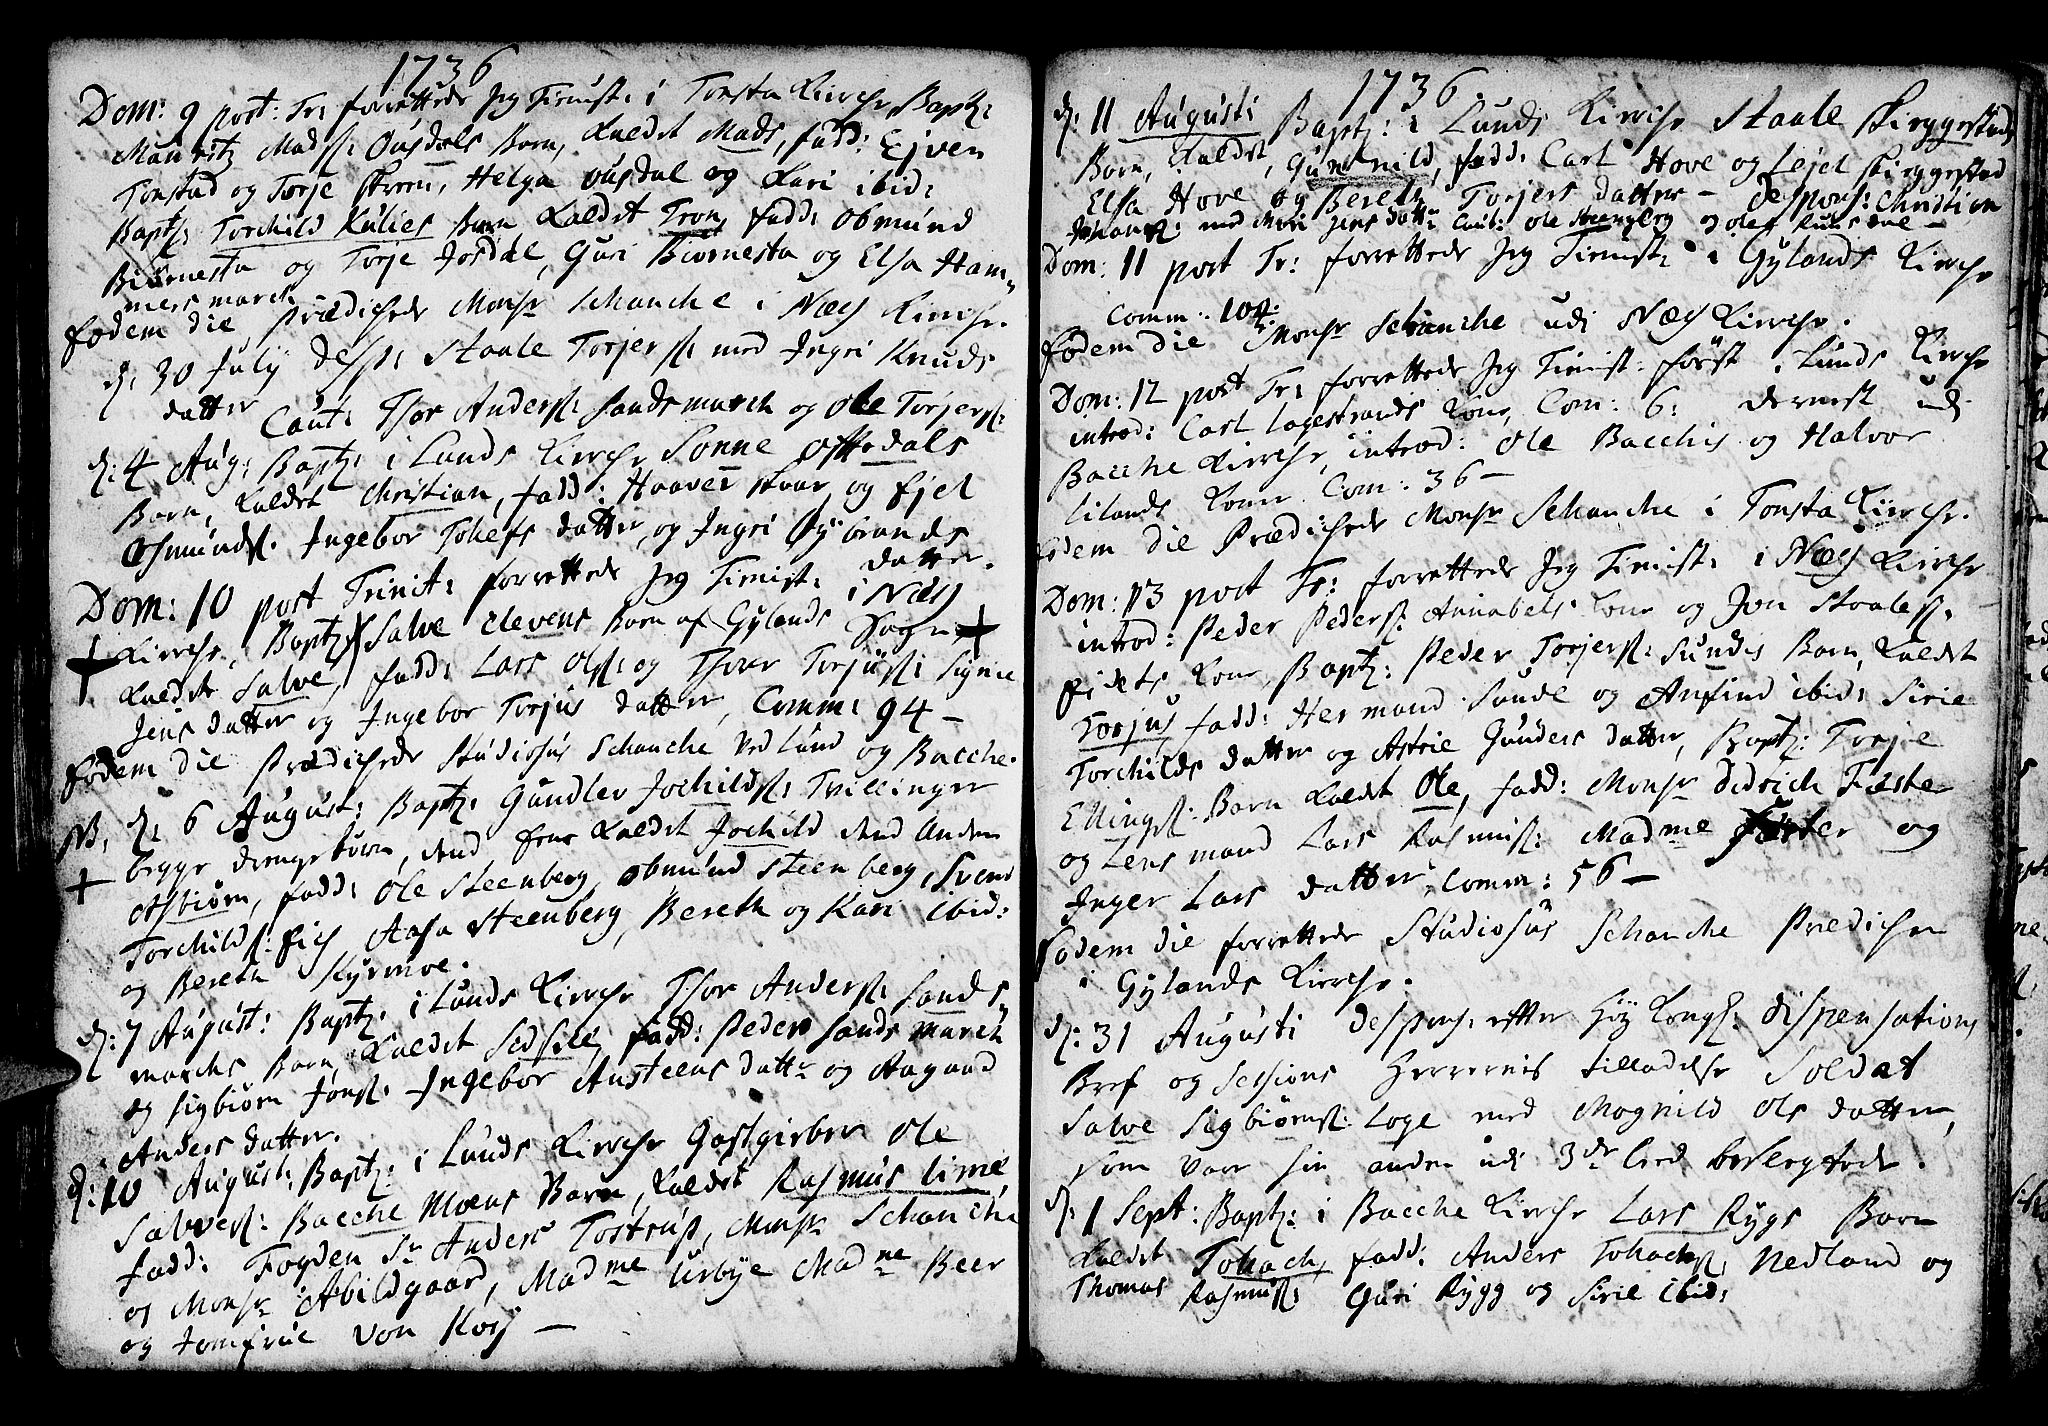 1736
Dom: 9 post: Tr: forrettede Jeg Tienist: i Tonsta Kirche, Bapt:
Mauritz Mads: Ousdals Barn, Kaldet Mads, fadd: Ejven
Tonstad og Torje Skreen, Helga ousdal og Kari ibid:
Bapt: Torchild Kulies barn Kaldet Tron, fadd: Obmund
Biørnesta og Torje Josdal, Guri Biørnesta og Elsa Ham-
mersmarck
Eodem die Prædichede Monsr Schanche i Næs Kirche.
d: 30 July Desp: Staale Torjers: med Ingri Knuds
datter Caut: Thor Anders: Sandsmarch og Ole Torjers:
d: 4 Aug: Bapt: i Lunds Kirche Sonne Ofstedals
Barn, Kaldet Christian, fadd: Haaver og Ejel
Osmunds: Ingebor Tolless datter, og Ingri Sybrands
datter.
Dom: 10 post Trinit: forrettede Jeg Tienist: i Næs
Kirche, Bapt: Salve Elevens Barn af Gylands Sogn
Kaldet Salve, fadd: Lars Ols: og Thor Torjus: Signe
Jens datter og Ingebor Torjus datter, Comm: 94 –
Eodem die Prædichede Studiosus Schanche ved Lund og Bacche.
NB, d: 6 August: Bapt: Gundler Jochilds: Tvillinger
begge drengebørn, dend Ene Kaldet Jochild dend Anden
Asbiørn, fadd: Ole Steenberg, Obmund Steenberg, Svend
Torchilds: Eie, Aasa Steenberg, Bereth og Kari ibid:
og Bereth Kyrmoe.
d: 7 August: Bapt: i Lunds Kirche Thor Anders: Sands-
marchs Barn, Kaldet Sedsele, fadd: Peder Sandsmarch
og Sigbiørn Jons: Ingebor Austeens dattr og Aagaad
Anders datter.
d: 10 August: Bapt: i Lunds Kirche Gastgieber Ole
Salves: Bacche Moens Barn, Kaldet Rasmus Lime,
fadd: Fogden Sr Anders Tostrup, Monsr Schanche
og Monsr Abildgaard, Madme Urbye Madme Beer
og Jomfrue von Koss –
1736.
d: 11 Augusti Bapt: i Lunds Kirche Staale Skieggestads
Barn, Kaldet, Gunhild, fadd: Carl Hove og Lejel Skieggestad
Elsa Hove og Bereth Torjers datter – Despons: Christian
Johans: med Mari Jens datt: Caut: Ole Steenberg og Olef Kulsdal –
Dom: 11 post Tr: forrettede Jeg Tienist: i Gylands Kirche
Comm: 104:
Eodem die Monsr Schanche udi Næs Kirche.
Dom: 12 post Tr: forrettede Jeg Tienist: først i Lunds Kirche
introd: Carl Lagestrands Kone, Com: 6: dernest udi
Bacche Kirche, introd: Ole Bacchis og Halvor
Lilands Koner Com: 36 –
Eodem die Prædichede Monsr Schanche i Tonsta Kirche.
Dom: 13 post Tr: forrettede Jeg Tienist: i Næs Kirche
introd: Peder Peders: Annabels Kone og Jon Staales:
Eidets Kone, Bapt: Peder Torjers: Sundes Barn, Kaldet
Torjus fadd: Hermand Sunde og Anfind ibid: Sirie
Torchilds datter og Astrie Gunders datter, Bapt: Torje
Ellings: Barn Kaldet Ole, fadd: Monsr Didrich Fæster
og Lensmand Lars Rasmus: Madme Fæster og
Inger Lars datter, Comm: 56 –
Eodem die forrettede Studiosus Schanche Prædichen
i Gylands Kirche.
d: 31 Augusti despens: efter Høy Kongl: dispensations
Bref og Sessions Herrernis tilladelse Soldat
Salve Sigbiørns: Loge med Magnild Ols datter,
som vaar hin anden udi 3die Leed beslegtede.
d: 1 Sept: Bapt: i Bacche Kirche Lars Rygs Barn
Kaldet Tohach, fadd: Anders Tohachs: Nedland og
Thomas Rasmus: Guri Rygg og Sirie ibid: